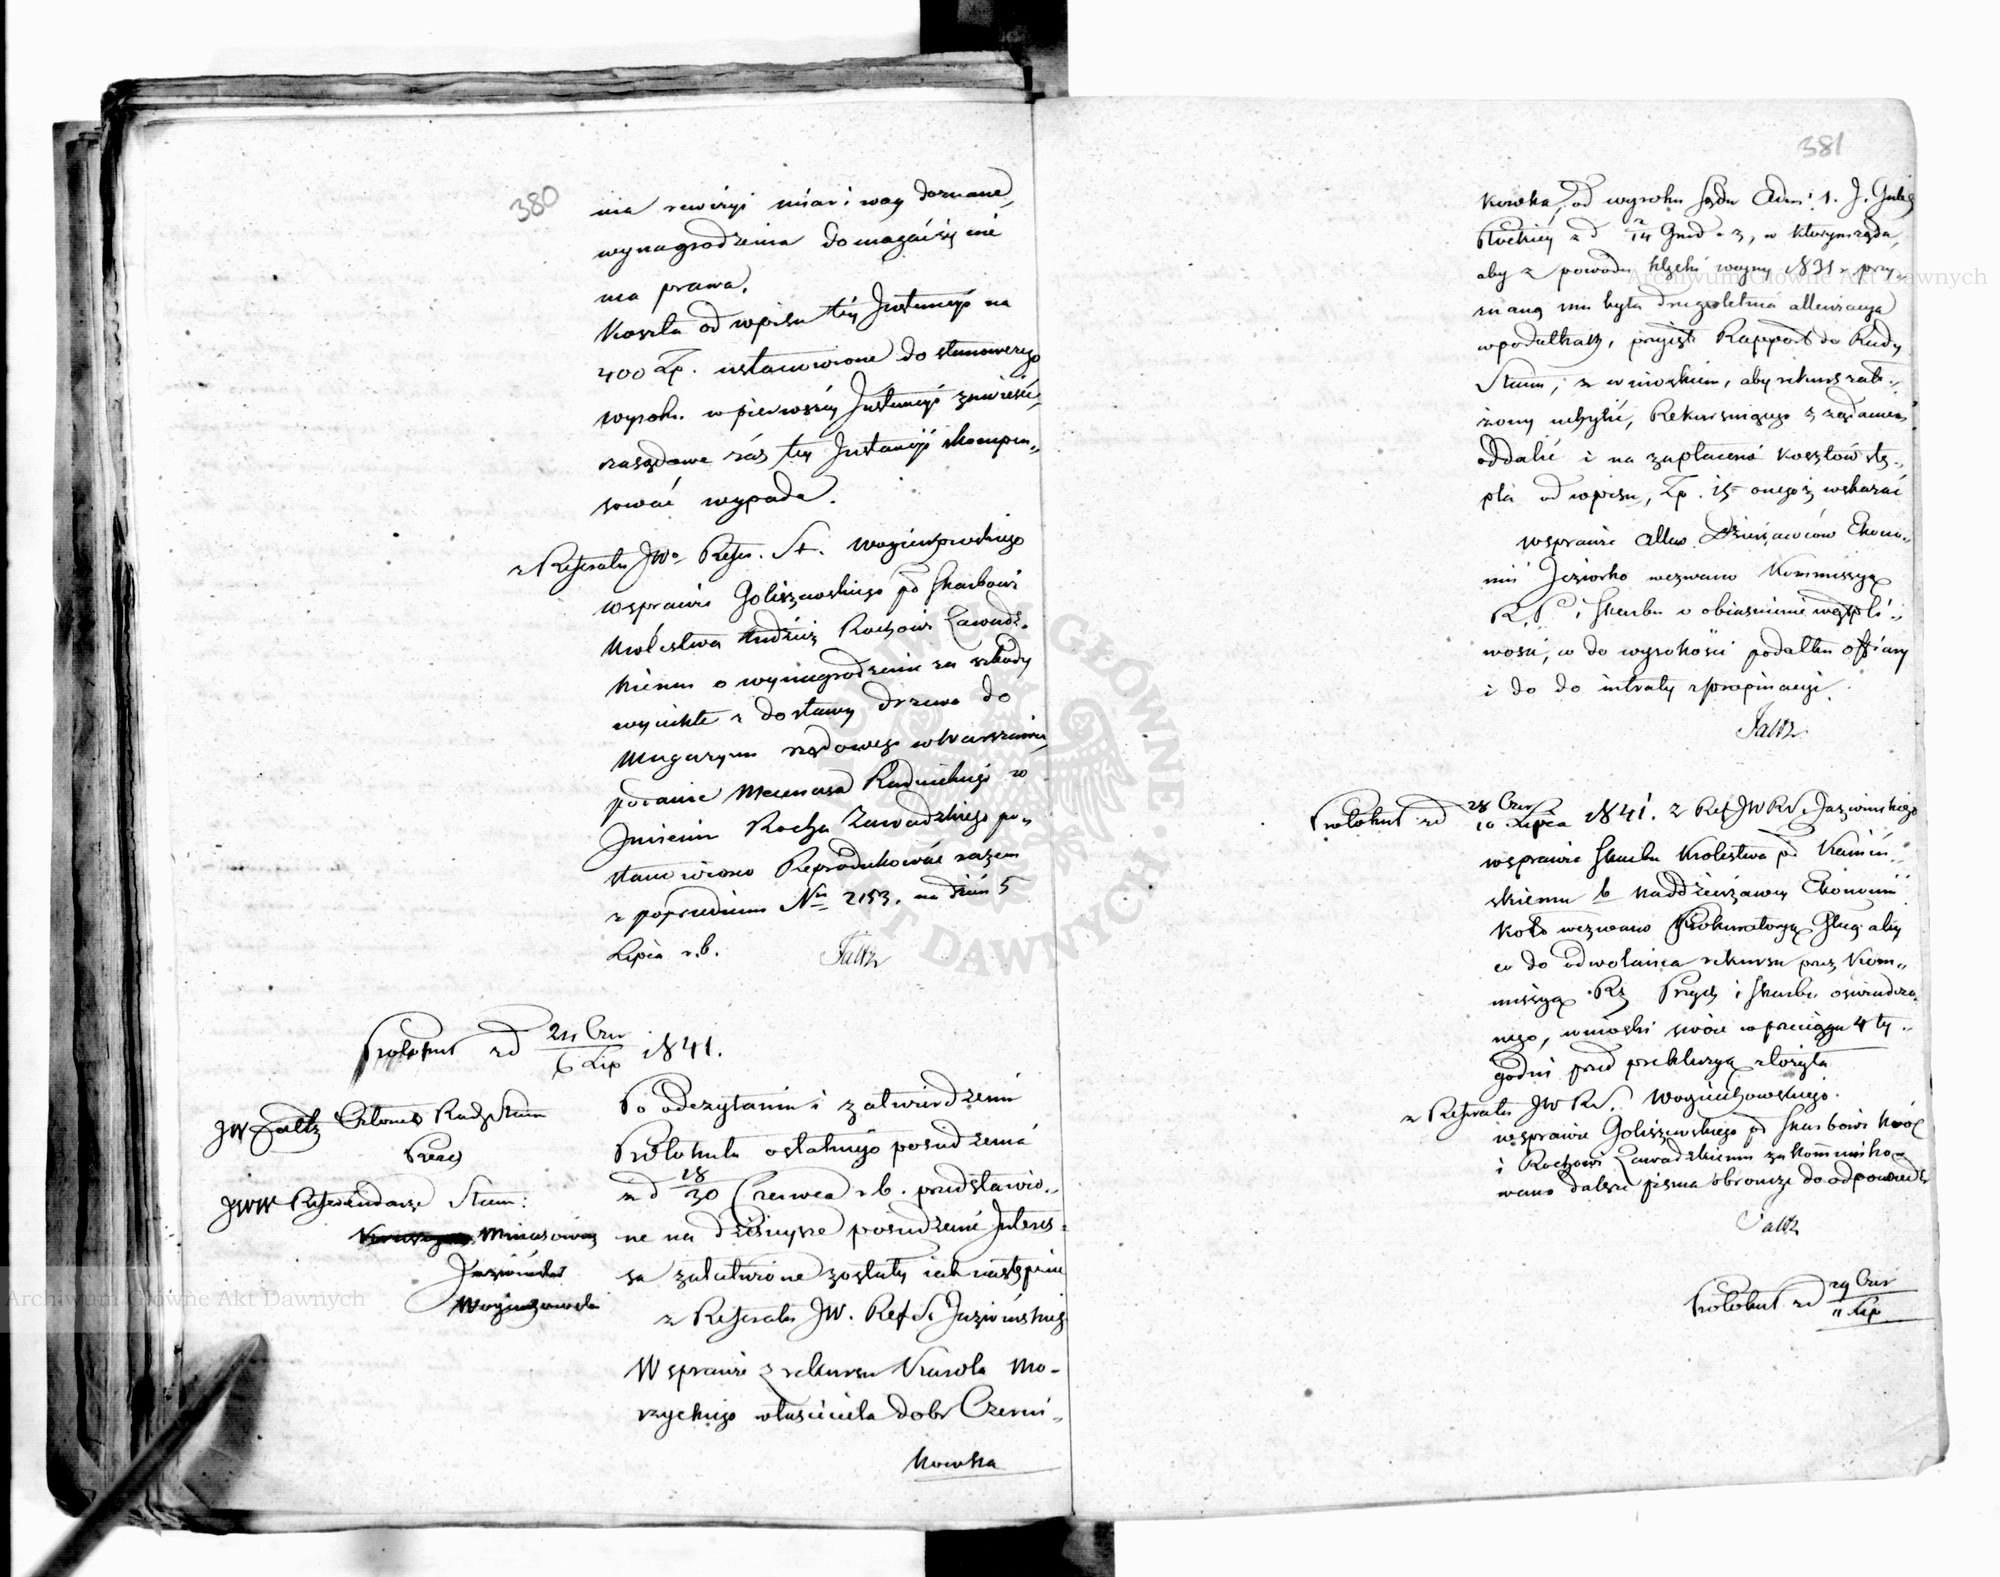 380
nia rewizyi miar i wag doznane,
wynagrodzenia domagać się nié
ma prawa.
Koszta od wpisu téy Instancyi na
400 Zp. ustanowione do stanowczego
wyroku w pierwszéy Instancyi znieść,
zasądzone záś téy Instancyi skompen„
sować wypada.
z Referatu JWo Refer. St. Woyciechowskiego
wsprawie Goliszewskiego pd Skarbowi
Królestwa tudziéż Rochowi Zawadz„
kiemu o wynagrodzenie za szkody
wynikłe z dostawy drzewa do
Magazynu rządowego w Warszawie,
podanie Mecenasa Rudnickiego w
Jmieniu Rocha Zawadzkiego po„
stanowiono Reprodukować razem
z poprzednim Nrm 2153. na dzień 5
Lipca r.b. Faltz
Protokuł zd 24 Czer / 6 Lip 1841.
JW Faltz Członek Rady Stanu
Prezes
JWW Referendarze Stanu:
Minasowicz
Jaźwiński
Woyciechowski
Po odczytaniu i zatwierdzeniu
Protokułu ostatniego posiedzenia
z d 18/30 Czerwca r.b. przedstawio„
ne na dzisieysze posiedzenie Interes„
sa załatwione zostały iak następuie
z Referatu JW. Ref St Jaźwińskiego
W sprawie z rekursu Karola Mo-
rzyckiego właściciela dobr Czerni„
kowska
381
kowska, od wyroku Sądu Admi 1. J. Gub
Płockiey z d 2/14 Grud r z, w którym żąda,
aby z powodu klęski woyny 1831 r. przy„
znaną mu była drugoletnia allewiacya
w podatkach, przyięto Rapport do Rady
Stanu, z wnioskiem, aby rekurs zało„
żony uchylić, Rekursuiącego z żądaniem
oddalić i na zapłacenie kosztów stę„
pla od wpisu, Zp. 15 onegoż wskazać
wsprawie Allew. Dzierżawców Ekono„
mii Jeziorko wezwano Kommissyą
R. P. i Skarbu o obiaśnienie wątpli„
wości, co do wysokości podatku offiary
i do do intraty z propinacyi.
Faltz
Protokuł zd 28 Czer / 10 Lipca 1841. z Ref JW RS. Jaźwińskiego
wsprawie Skarbu Królestwa pd Kamiń„
skiemu b naddzierżawcy Ekonomii
Koło wezwano Prokuratoryą Gług aby
co do odwołania rekursu przez Kom„
missyą Rz Przych i Skarbu oświadczo„
nego, wnioski swoie w przeciągu 4 ty„
godni pod prekluzyą złożyła
z Referatu JW RS. Woyciechowskiego.
wsprawie Goliszewskiego pd Skarbowi Król
i Rochowi Zawadzkiemu zakommuniko„
wano dalsze pisma obrończe do odpowiedzi
Faltz
Protokuł zd 29 Czer / 11 Lip
Archiwum Główne Akt Dawnych
Archiwum Główne Akt Dawnych